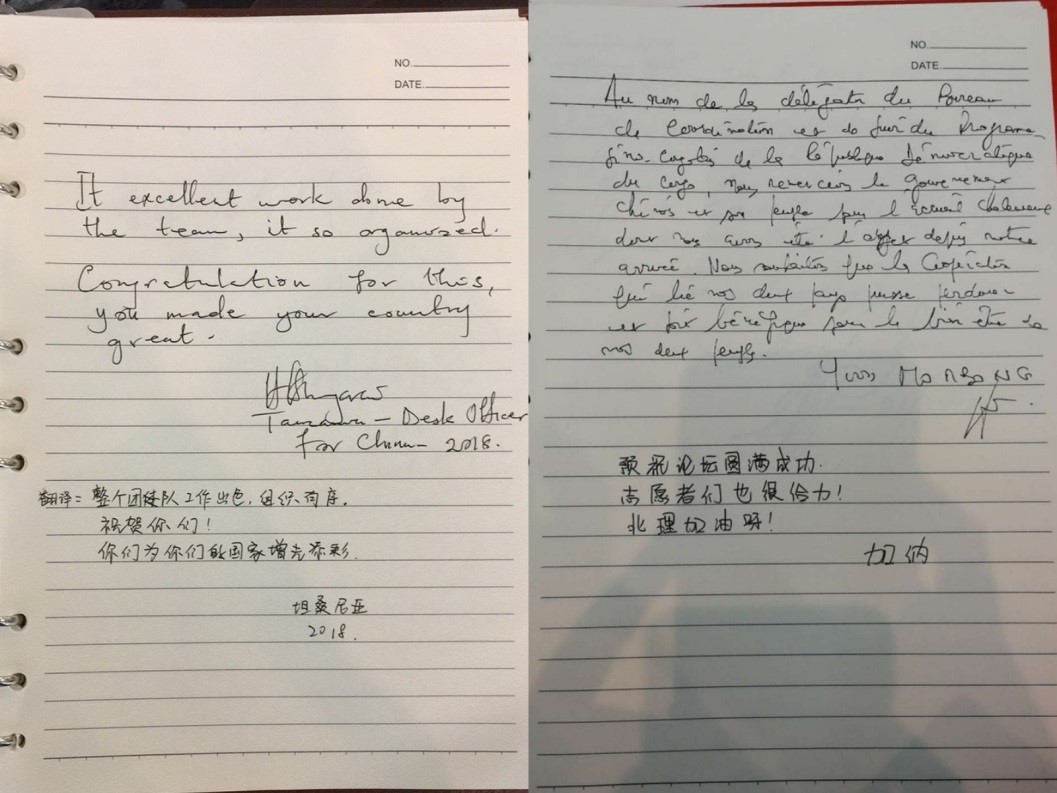 NO.
DATE.
It excellent work done by
the team, it so organized.
Congratulation for this,
you made your country
great.
Desk Officer
For China 2018.
翻译:整个团队工作出色,组织有序。
祝贺你们!
你们为你们的国家增光添彩.
坦桑尼亚
2018.
NO.
DATE.
Au nom de la délégation du Bureau
de Coordination et de Suivi du Programme
Sino-Congolais de la République Démocratique
du Congo, nous remercions le gouvernement
chinois et son peuple pour l'accueil chaleureux
dont nous avons été l'objet depuis notre
arrivée. Nous souhaitons que la Coopération
qui lie nos deux pays puisse perdurer
et soit bénéfique pour le bien être de
nos deux peuples.
Yves
预祝论坛圆满成功.
志愿者们也很给力!
北理加油呀!
加纳